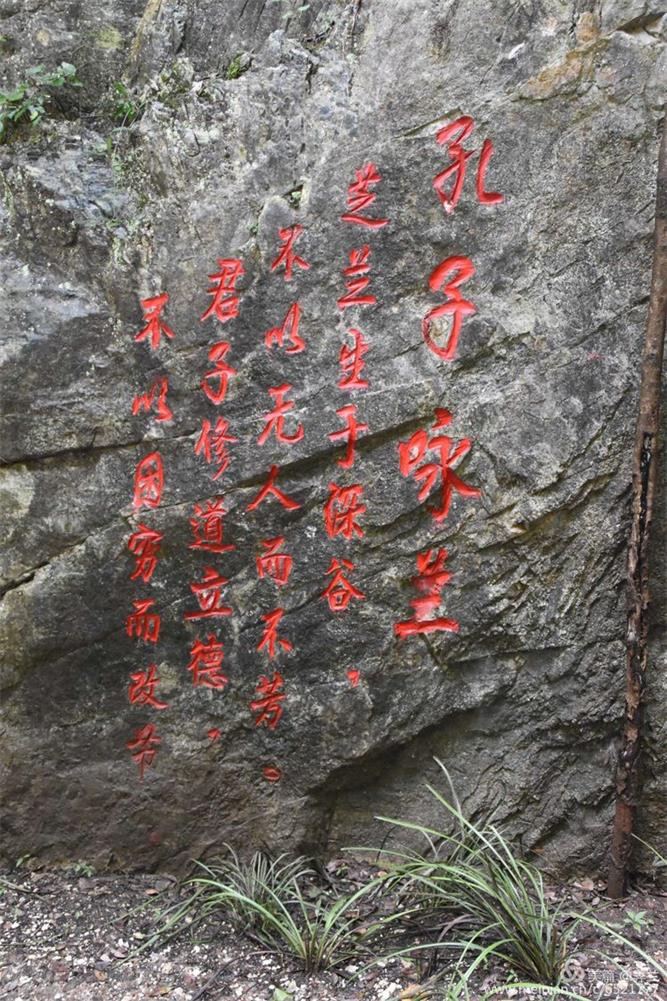 孔子咏兰
芝兰生于深谷，
不以无人而不芳。
君子修道立德，
不以困穷而改节